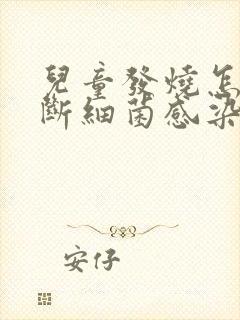 兒童發燒怎
斷細菌感染
安仔